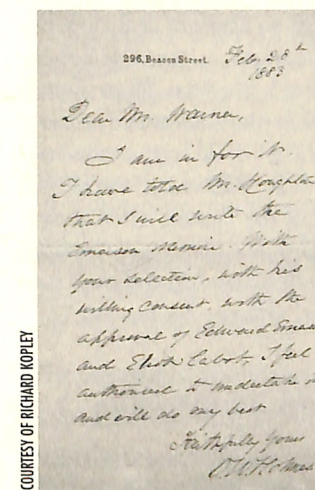 296, Beacon Street. Feb. 28th
1883
Dear Mr. Warner,
I am in for it.
I have told Mr. Houghton
that I will write the
Emerson Memoir. With
your selection, with his
willing consent, with the
approval of Edward Emerson
and Eliot Cabot, I feel
authorized to undertake it
and will do my best
Faithfully yours
O. W. Holmes
COURTESY OF RICHARD KOPLEY